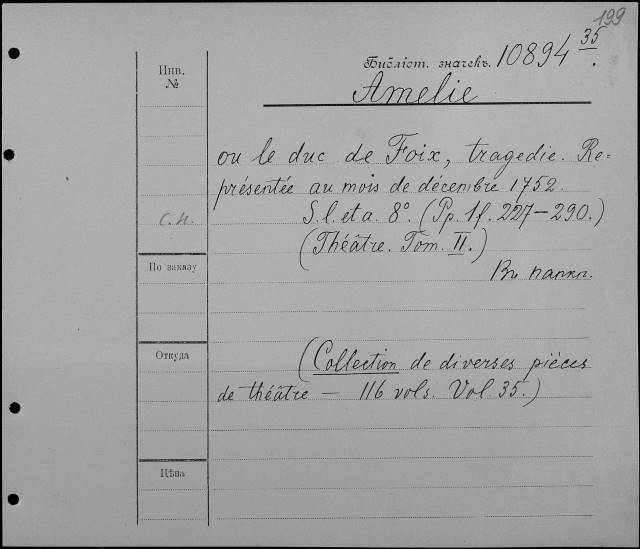 199
Инв.
№
Библіот. значекъ. 10894 35.
Amelie
ou le duc de Foix, tragedie. Re-
présentée au mois de décembre 1752.
S. l. et a. 8°. (Pp. 1f. 227–290.)
с.н.
(Théâtre. Tom. II.)
По заказу
Въ папкѣ.
Откуда
(Collection de diverses pièces
de théâtre — 116 vols. Vol. 35.)
Цѣна